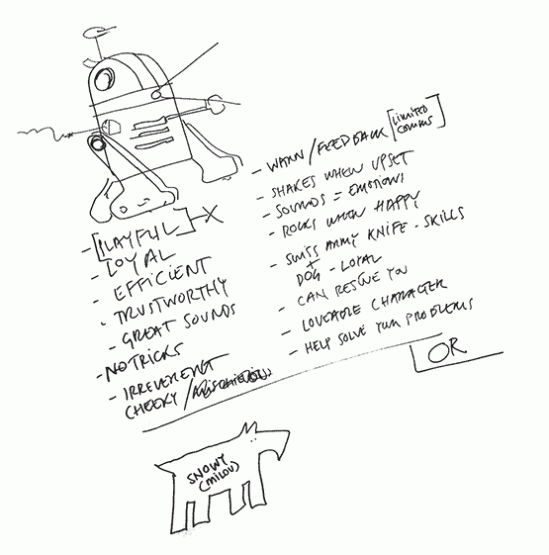 - [PLAYFUL] - X
- LOYAL
- EFFICIENT
- TRUSTWORTHY
- GREAT SOUNDS
- NO TRICKS
- IRREVERENT
CHEEKY /
- WARN / FEEDBACK [LIMITED COMMS]
- SHAKES WHEN UPSET
- SOUNDS = EMOTIONS
- ROCKS WHEN HAPPY
- SWISS ARMY KNIFE - SKILLS
+
DOG - LOYAL
- CAN RESCUE YOU
- LOVEABLE CHARACTER
- HELP SOLVE YOUR PROBLEMS
OR
SNOWY
(MILOU)